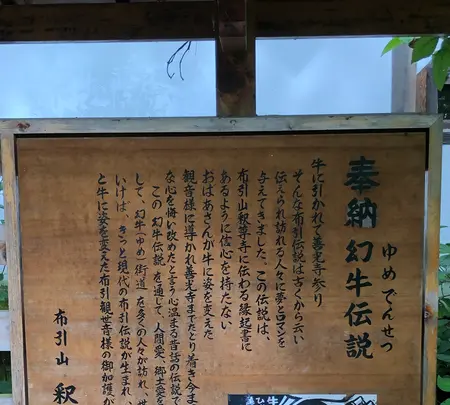 奉納 幻牛伝説
ゆめ でんせつ
牛に引かれて善光寺参り
そんな布引伝説は古くから云い
伝えられ訪れる人々に夢とロマンを
与えてきました。この伝説は、
布引山釈尊寺に伝わる縁起書に
あるように信心を持たない
おばあさんが牛に姿を変えた
観音様に導かれ善光寺までたどり着き今ま
な心を悔い改めたと言う心温まる昔話の伝説で
この幻牛伝説を通して、人間愛、郷土愛を
して、幻牛(ゆめ)街道を多くの人々が訪れ、世
いけば、きっと現代の布引伝説が生まれ、
と牛に姿を変えた布引観世音様の御加護が
布引山 釈